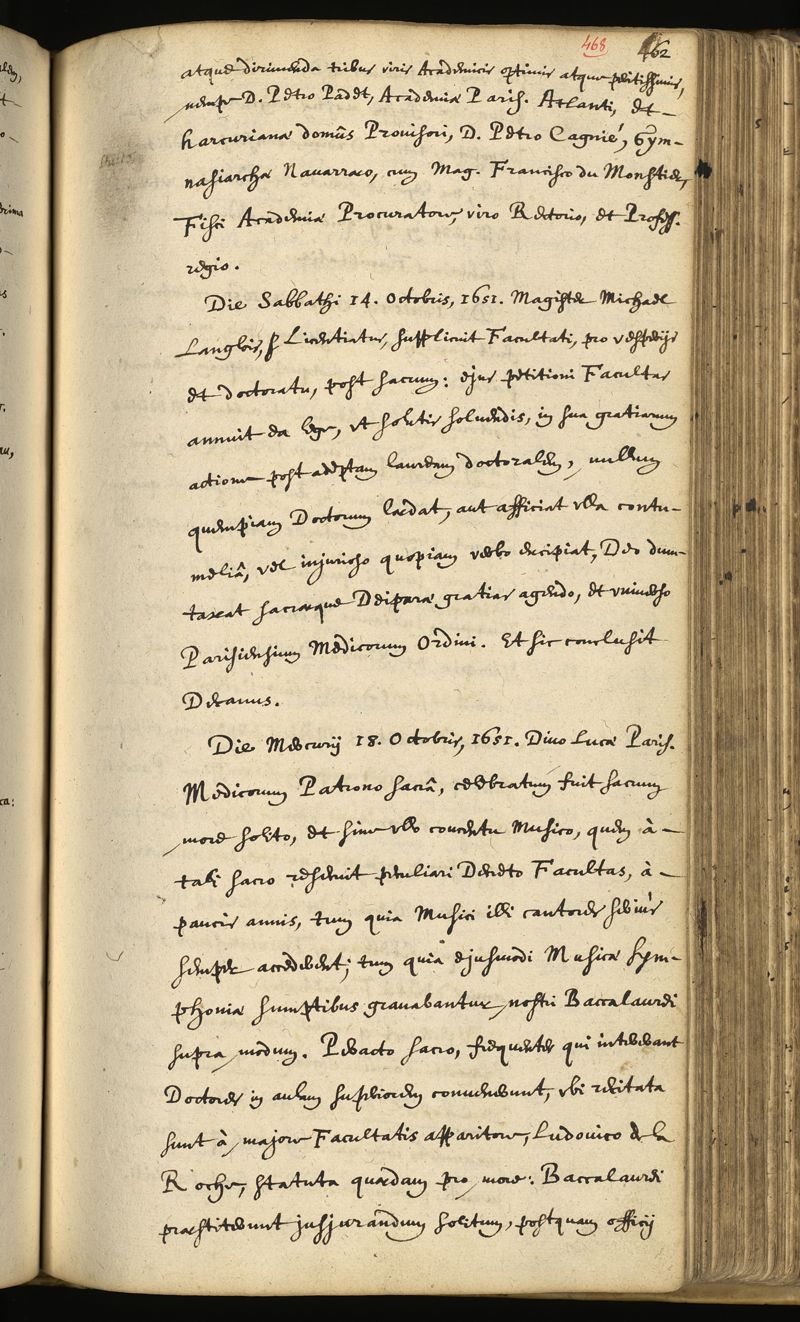 468 462
atque dirimenda tribus viris Academicis optimis atque peritissimis,
nempe D. Petro Padet, Academiæ Paris. Atlanti, et
harcurianæ domûs Provisori, D. Petro Cagnié, Gym-
nasiarchæ Navarræo, cum Mag. Francisco du Monstier,
Fisci Academiæ Procuratore, viro Rectorio, et Profess.
regio.
Die Sabbathi 14. Octobris, 1651. Magister Michael
Langlois, Licentiatus, supplicuit Facultati, pro vesperijs
et doctoratu, post sacrum: ejus petitioni Facultas
annuit ea lege, ut solutis solvendis, in sua gratiarum
actione post adeptam lauream doctoralem, nullum
quempiam Doctorum lædat, aut afficiat ulla contu-
meliâ, vel injurioso quopiam verbo excipiat, Deo dum-
taxat sacræque Deiparæ gratias agendo, et universo
Parisiensium Medicorum Ordini. Et sic conclusit
Decanus.
Die Mercurij 18. Octobris, 1651. Divo Lucæ Paris.
Medicorum Patrono sacrâ, celebratum fuit sacrum
more solito, et sine ullo concentu Musico, quem à
tali sacro resecuit peculiari Decreto Facultas, à
paucis annis, tum quia Musici illi cantores seriùs
semper accederent; tum quia ejusmodi Musicæ sym-
phoniæ sumptibus gravabantur nostri Baccalaurei
supra modum. Peracto sacro, frequenter qui intererant
Doctores in aulam superiorem convenerunt, ubi recitata
sunt à majore Facultatis apparitore, Ludovico de la
Roche, statuta quædam pro more: Baccalaurei
præstiterunt jusjurandum solitum, postquam officij